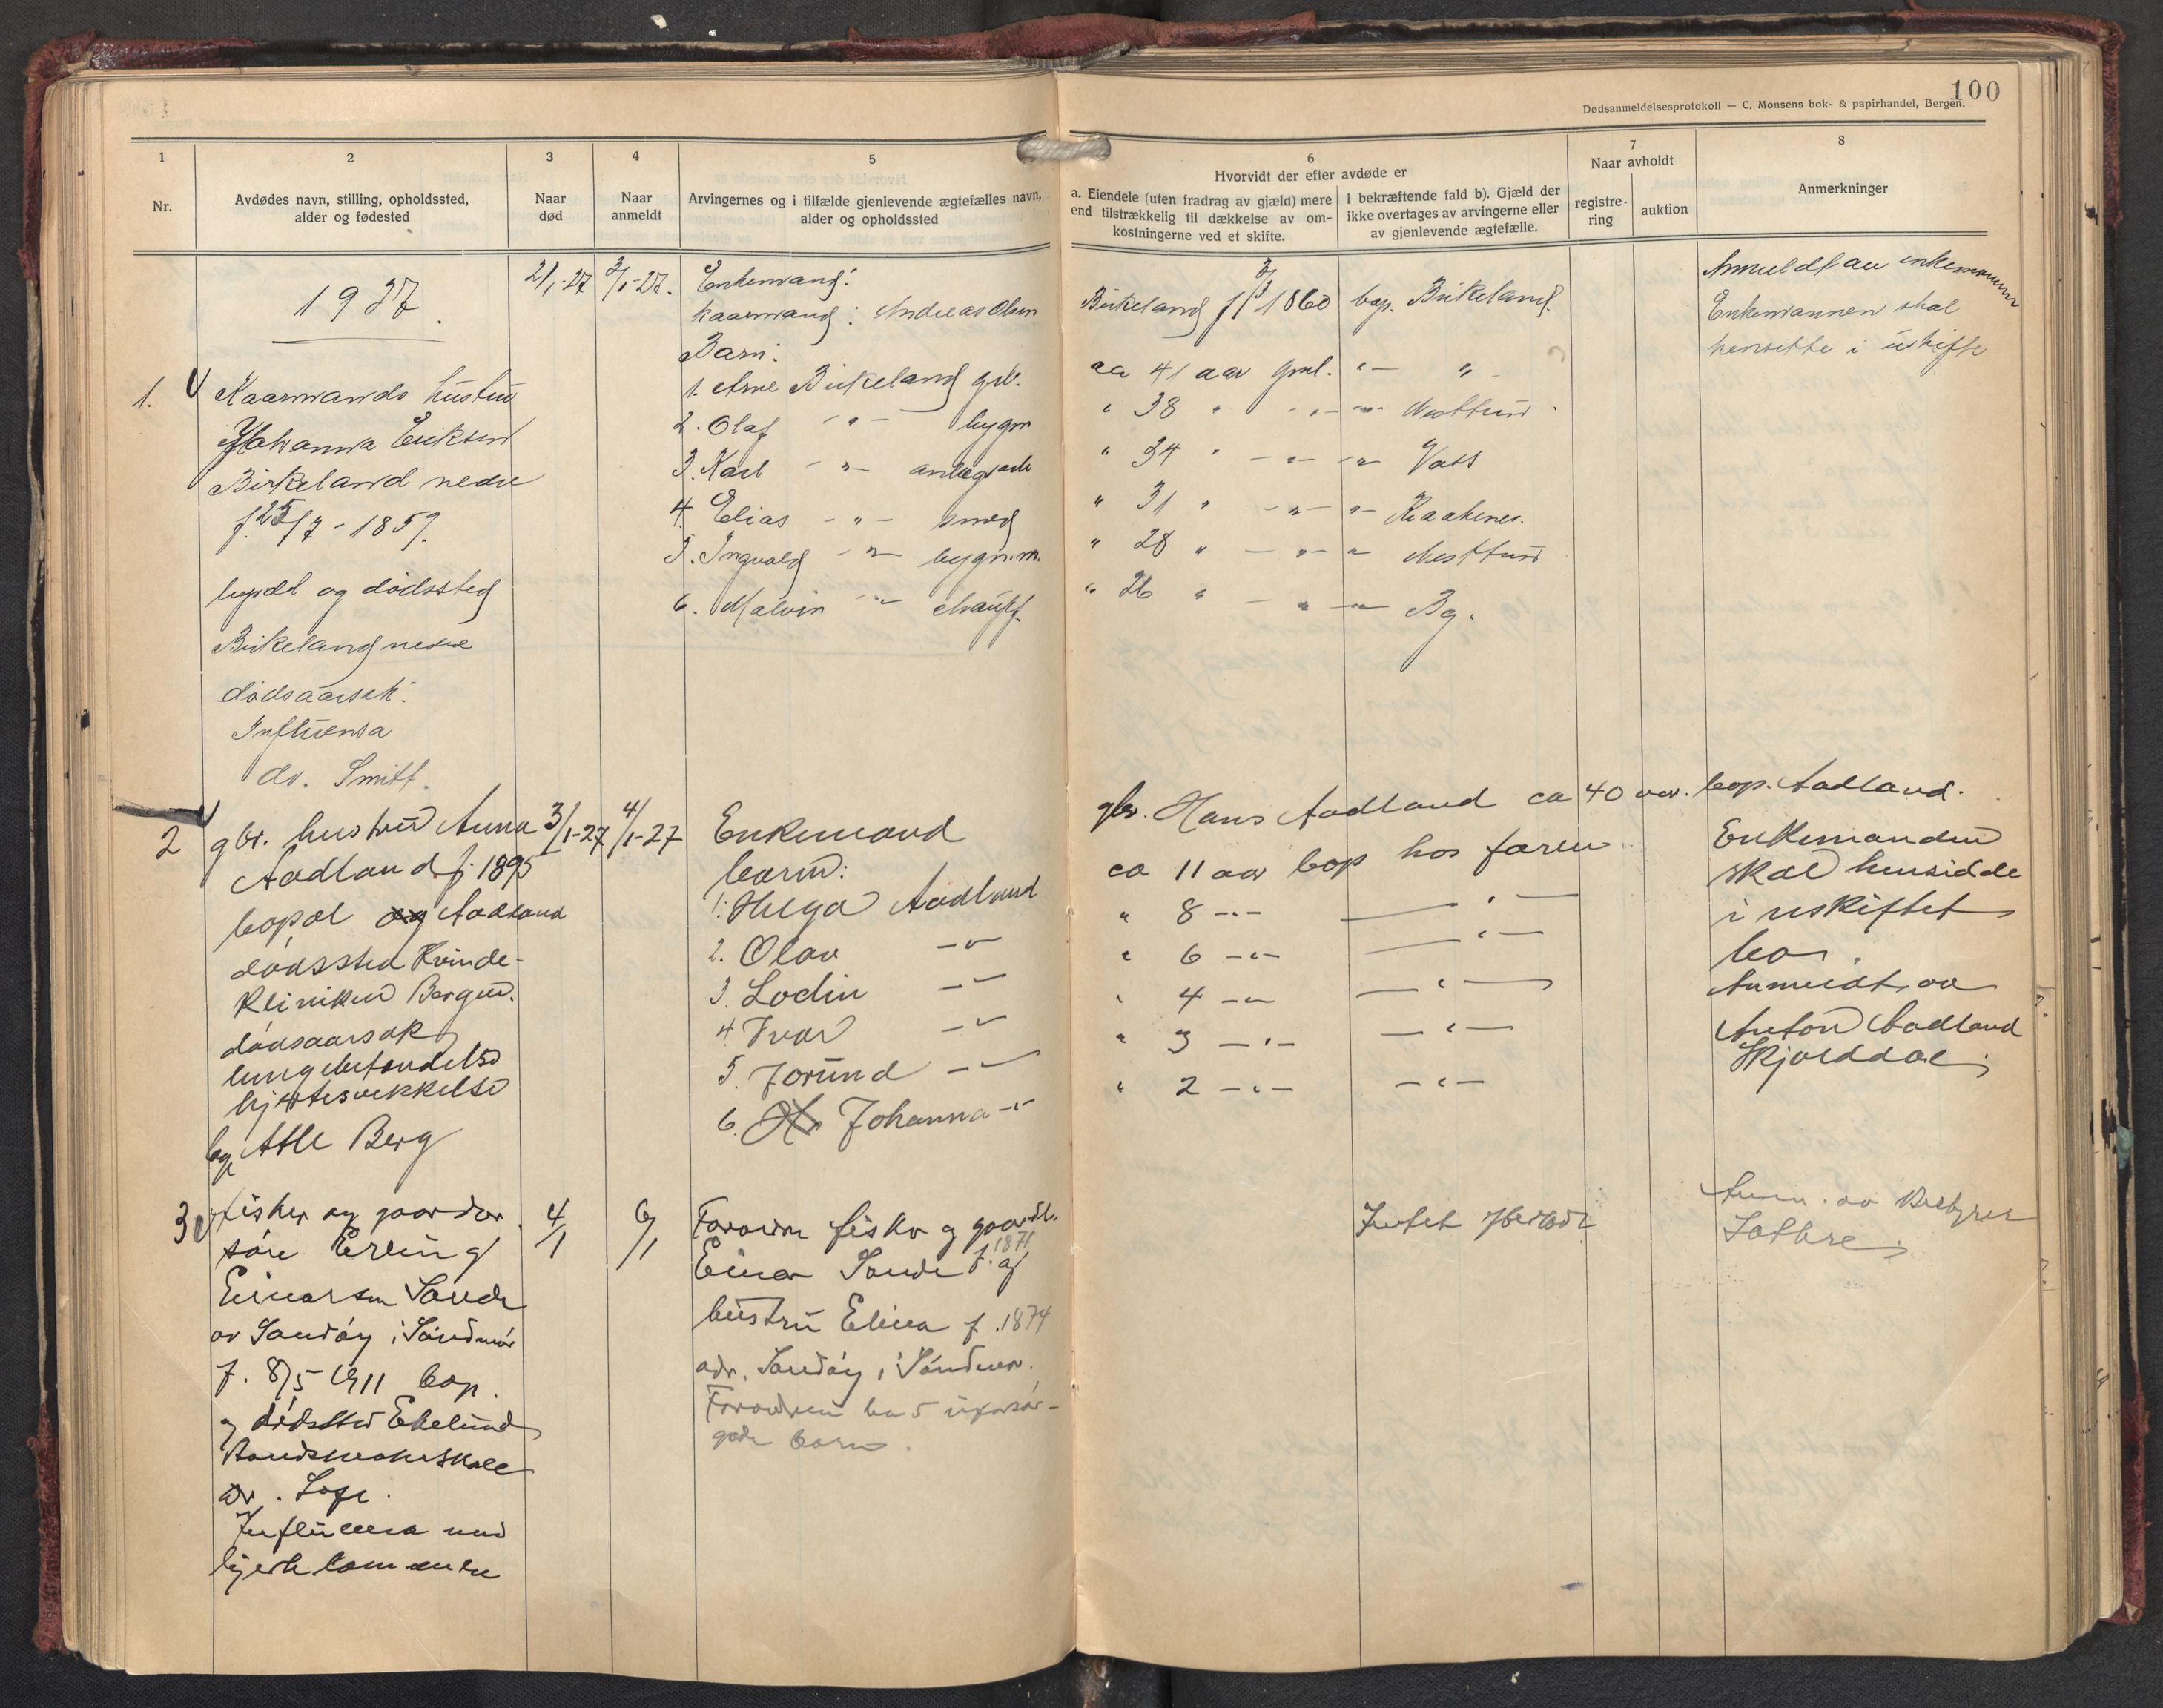 100
Dødsanmeldelsesprotokoll — C. Monsens bok- & papirhandel, Bergen.
1
Nr.
2
Avdødes navn, stilling, opholdssted,
alder og fødested
3
Naar
død
4
Naar
anmeldt
5
Arvingernes og i tilfælde gjenlevende ægtefælles navn,
alder og opholdssted
6
Hvorvidt der efter avdøde er
a. Eiendele (uten fradrag av gjæld) mere
end tilstrækkelig til dækkelse av om-
kostningerne ved et skifte.
I bekræftende fald b). Gjæld der
ikke overtages av arvingerne eller
av gjenlevende ægtefælle.
7
Naar avholdt
registre-
ring
auktion
8
Anmerkninger
1927.
1.
Kaarmands hustru
Johanna Eriksen
Birkeland nedre
f. 25/7 - 1859.
bopæl og dødssted
Birkeland nedre
dødsaarsak:
Influensa
dr. Smitt.
2/1-27
3/1-27.
Enkemand:
kaarmand: Andreas Olsen
Birkeland f 1860 bop. Birkeland.
Barn:
1. Arne Birkeland gbr. ca 41 aar gml. " — " -
2. Olaf - " - bygm " 38 " - " - " - Nesttun
3. Karl - " - anlegsarb " 34 " - " - " Voss
4. Elias - " - smed " 31 " - " - "
5. Ingvald - " - bygn.m. " 28 " - " - " Nesttun
6. Malvin - " - chauff. " 26 " - " - " Bg.
Anmeldt av enkemannen
Enkemannen skal
hensitte i uskifte
2
gbr. hustru Anna
Aadland f. 1895
bopæl og Aadland
dødssted Kvinde-
kliniken Bergen.
dødsaarsak
lungebetændelse
hjertesvekkelse
Atle Berg
3/1-27
4/1-27
Enkemand gbr. Hans Aadland ca 40 aar. bop. Aadland.
barn:
1. Helga Aadland ca 11 aar bop hos faren
2. Olav - " - " 8 - " - — " —
3. Lodin - " - " 6 - " - — " —
4 Ivar - " - " 4 - " - — " —
5. Jorund - " - " 3 - " - — " —
6. Johanna - " - " 2 - " - — " —
Enkemanden
skal hensidde
i uskiftet
bo.
Anmeldt av
Anton Aadland
Skjolddal
3
fisker og gaardbr
søn Erling
Einarsen Sande
av Sandøy i Søndmør
f. 8/5 1911 bop.
og dødssted Ekelund
Aandssvakeskole
dr.
Influensa med
hjertelammelse
4/1
6/1
Forældre fisker og gaardbr.
Einar Sande f. 1871 og
hustru Elina f. 1874
adr. Sandøy i Søndmør.
Forældrene har 5 uforsør-
gede børn.
Intet
Anm. av Bestyrer
Sætre